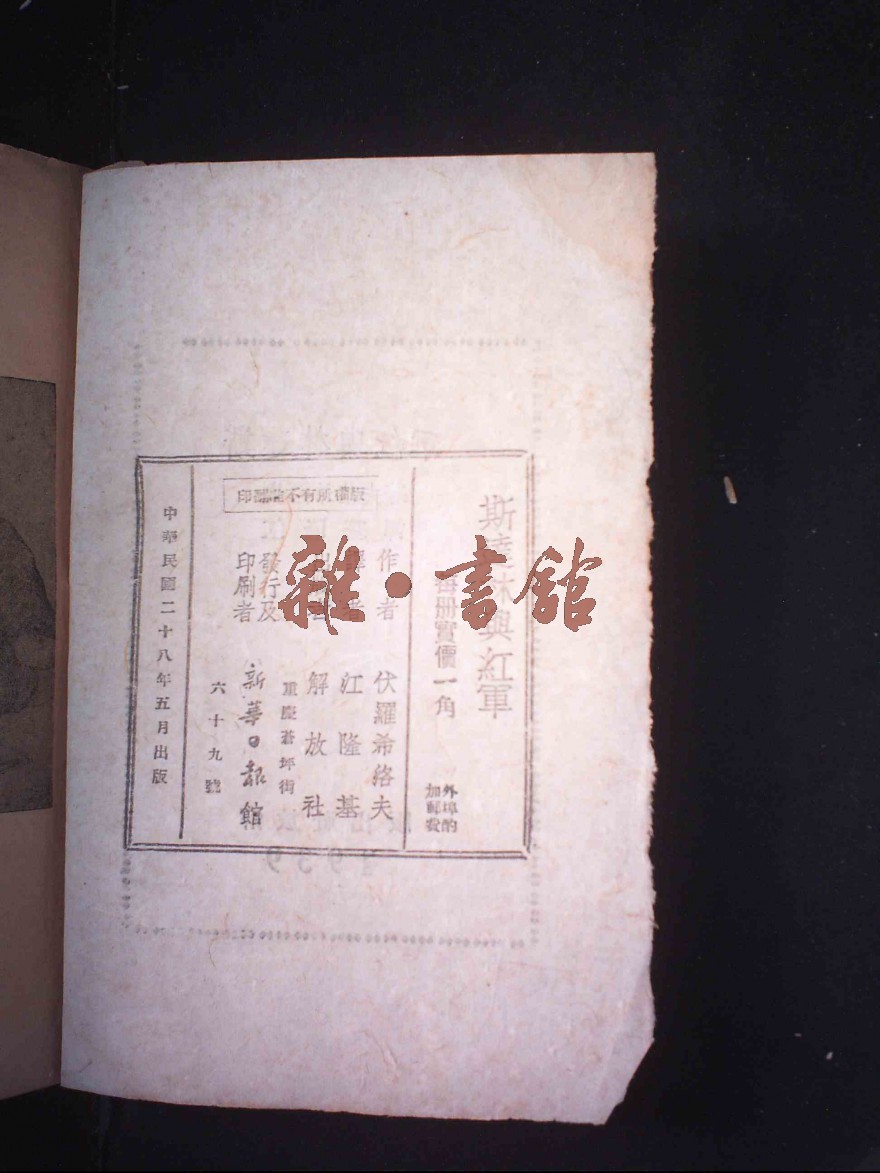 斯達林與紅軍
每册實價一角
外埠酌
加郵費
作者 伏羅希洛夫
譯者 江隆基
出版者 解放社
發行及
印刷者
新華日報館
重慶蒼坪街
六十九號
版權所有不准翻印
中華民國二十八年五月出版
雜·書館